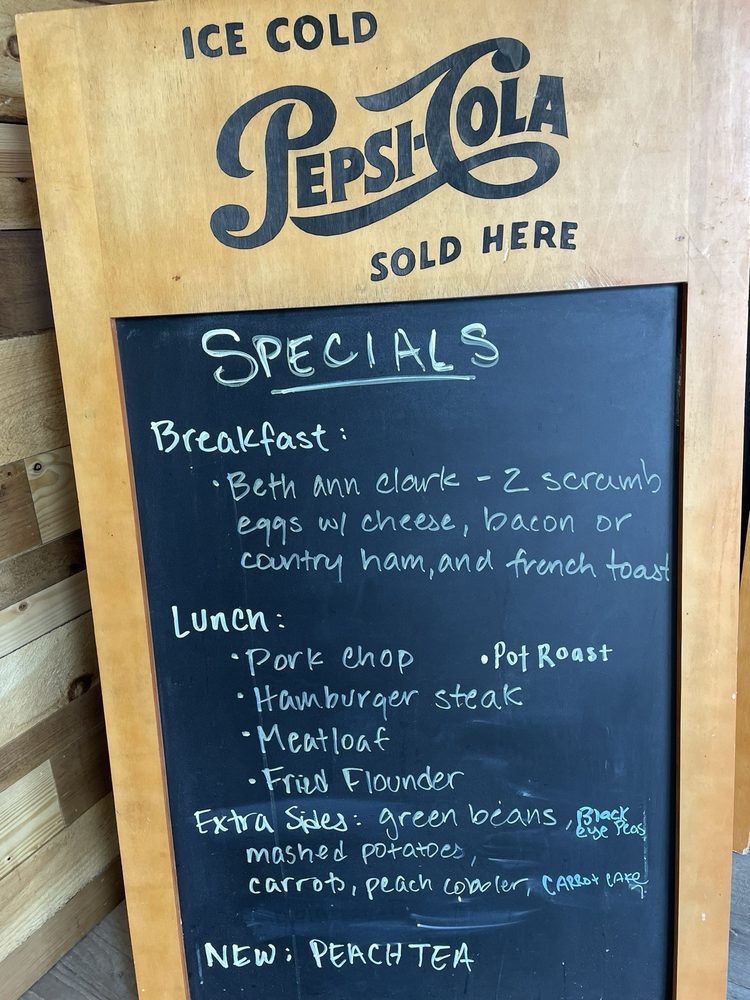 ICE COLD
PEPSI-COLA
SOLD HERE
SPECIALS
Breakfast:
• Beth ann clark - 2 scramb
eggs w/ cheese, bacon or
country ham, and french toast
Lunch:
• Pork chop • Pot Roast
• Hamburger steak
• Meatloaf
• Fried Flounder
Extra Sides: green beans, Black
eye Peas
mashed potatoes,
carrots, peach cobbler, CARROT CAKE
NEW: PEACH TEA